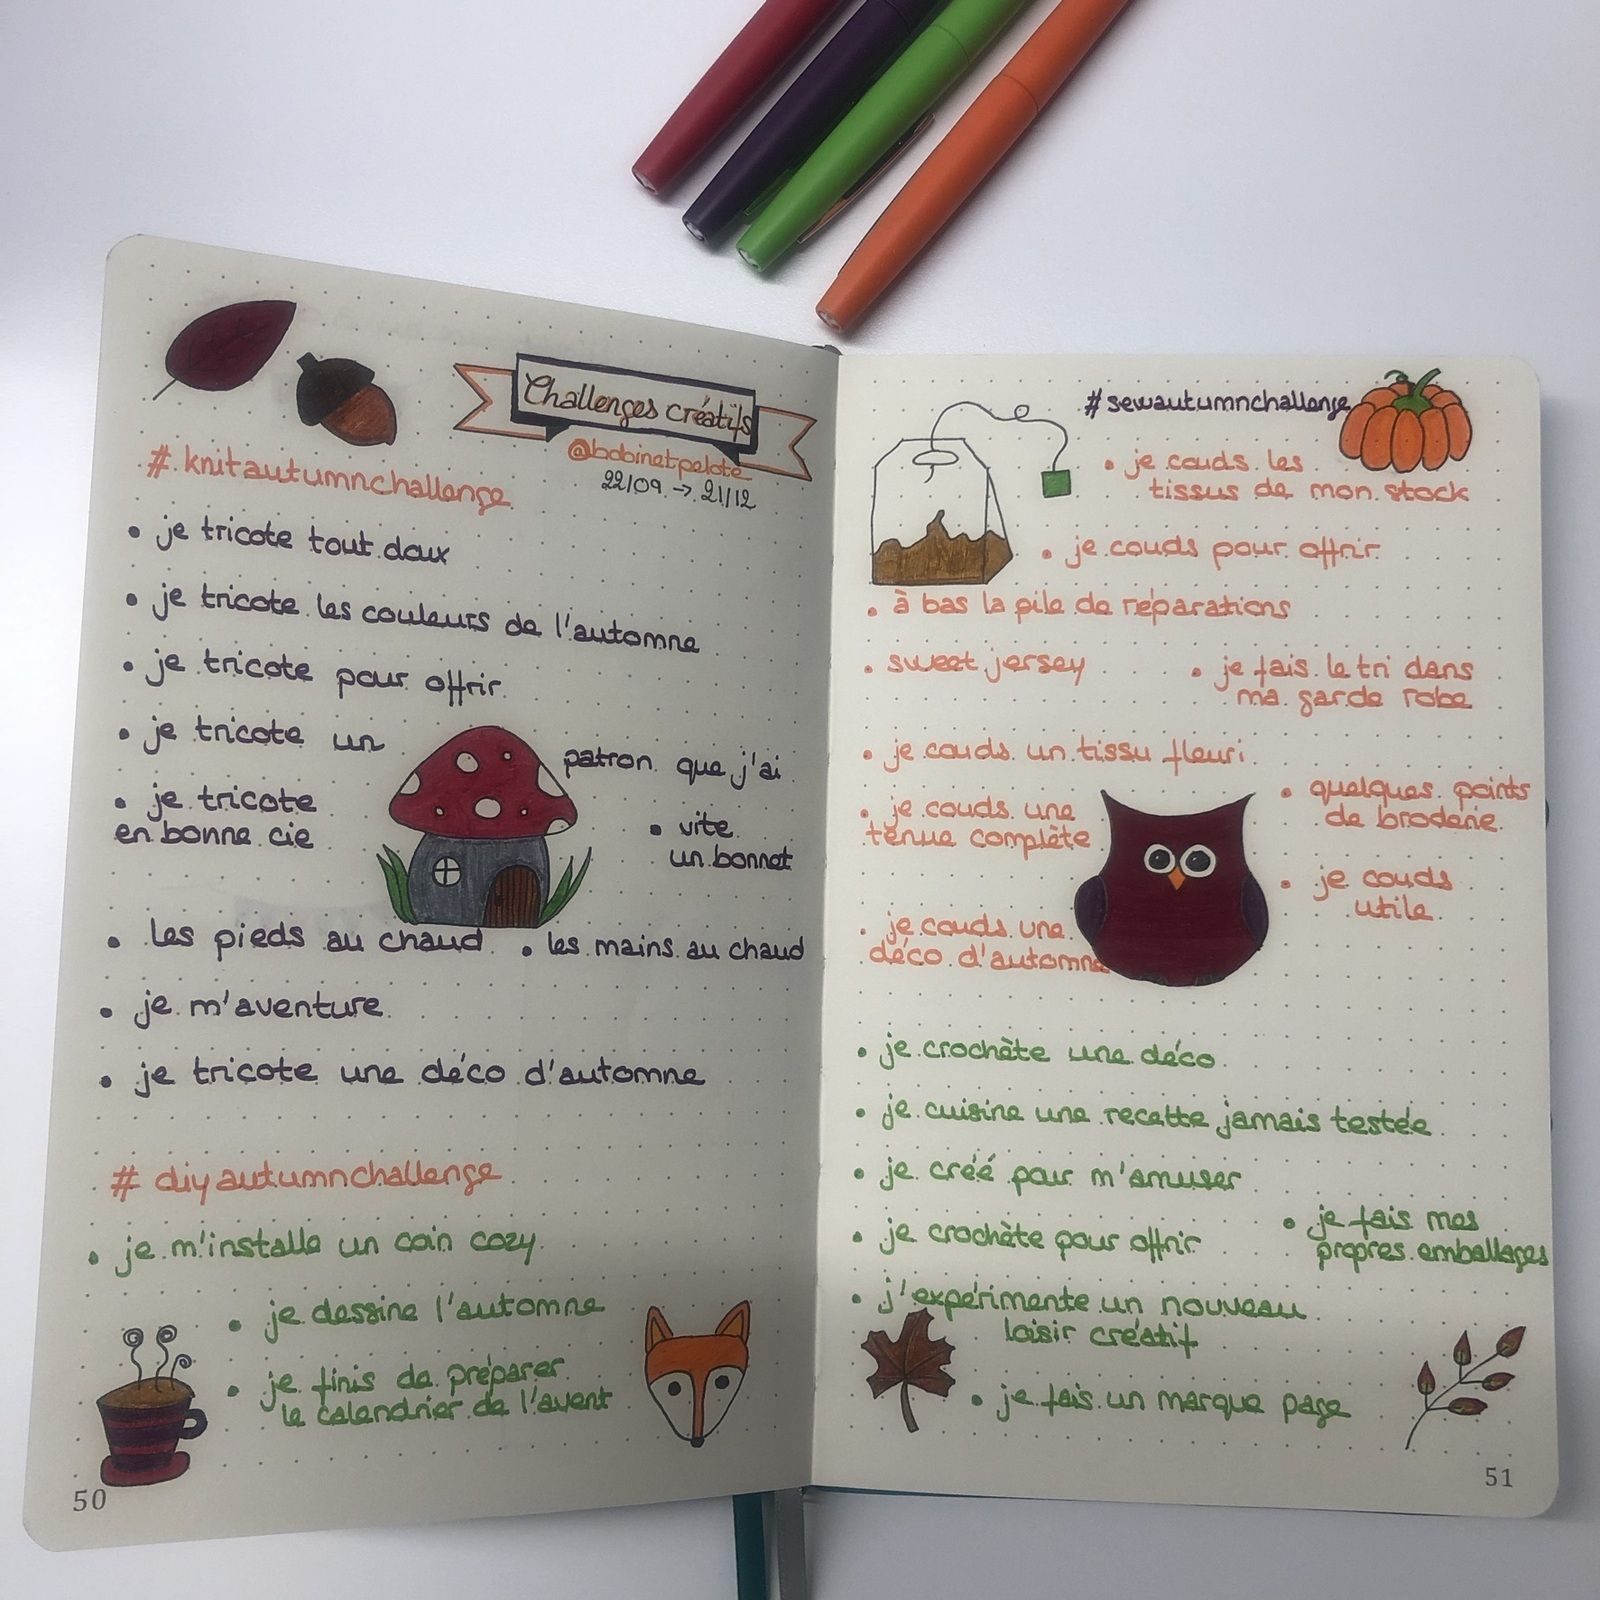 Challenges créatifs
@bobinetpelote
22/09 → 21/12
# knitautumnchallenge
• je tricote tout doux
• je tricote les couleurs de l'automne
• je tricote pour offrir
• je tricote un patron que j'ai
• je tricote
en bonne cie
• vite
un bonnet
• les pieds au chaud
• les mains au chaud
• je m'aventure
• je tricote une déco d'automne
# diyautumnchallenge
• je m'installe un coin cozy
• je dessine l'automne
• je finis de préparer
le calendrier de l'avent
50
#sewautumnchallenge
• je couds les
tissus de mon stock
• je couds pour offrir
• à bas la pile de réparations
• sweet jersey
• je fais le tri dans
ma garde robe
• je couds un tissu fleuri
• je couds une
tenue complète
• quelques points
de broderie
• je couds
utile
• je couds une
déco d'automne
• je crochète une déco
• je cuisine une recette jamais testée
• je créé pour m'amuser
• je crochète pour offrir
• je fais mes
propres emballages
• j'expérimente un nouveau
loisir créatif
• je fais un marque page
51